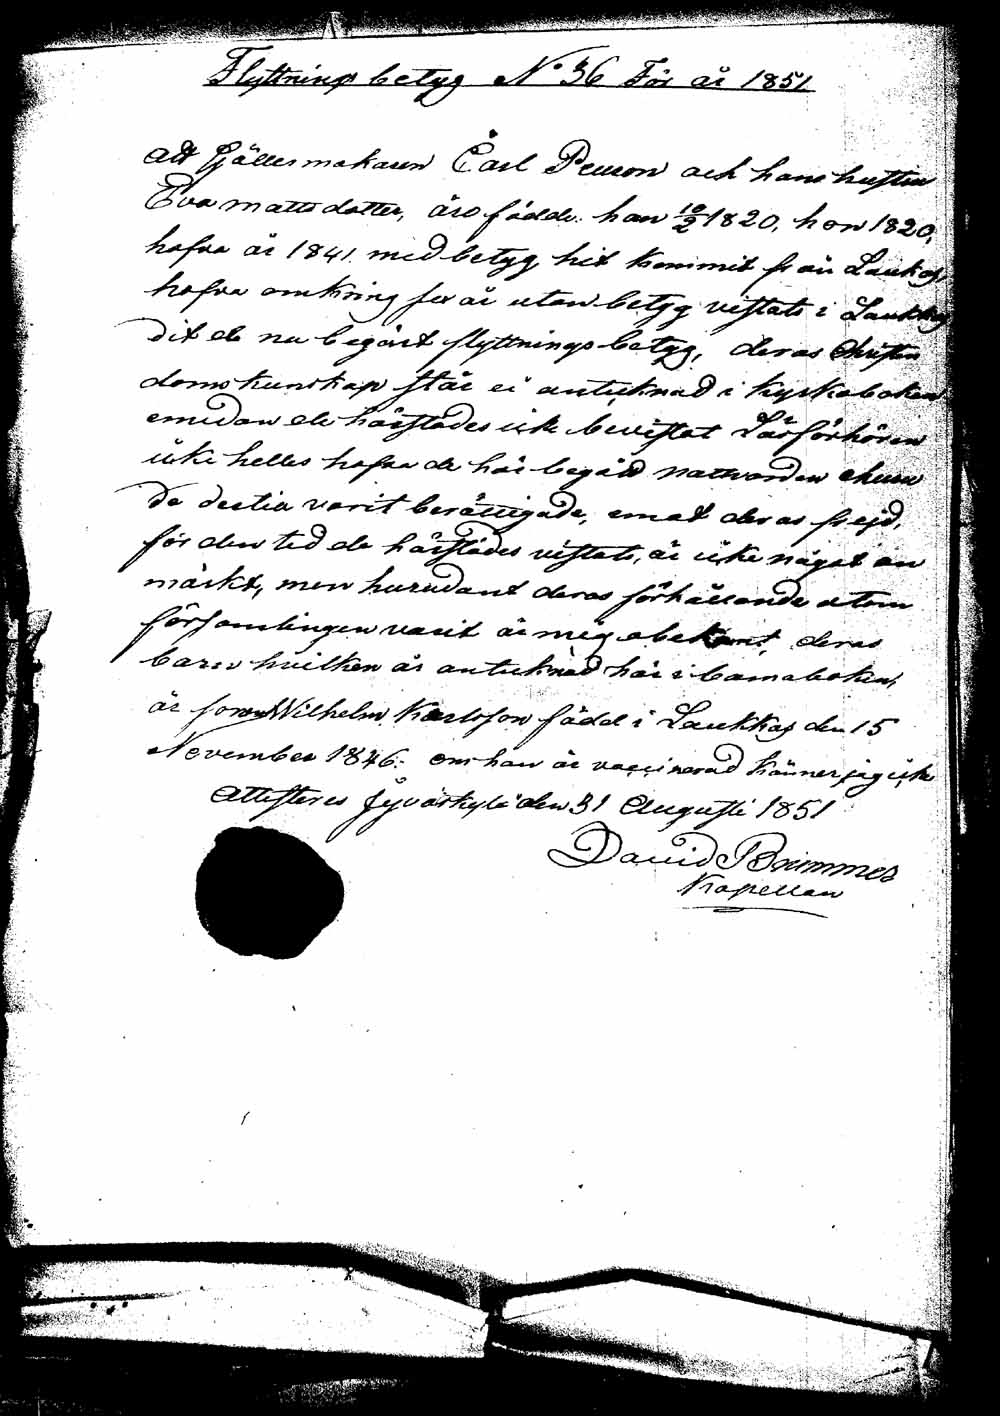 Flyttnings betyg No 36 För år 1851
Att fjällermakaren Carl Peuron och hans hustru
Eva matts dotter, äro födde: han 10/2 1820, hon 1820,
hafva år 1841 med betyg hit kommit från Laukas,
hafva omkring sex år utan betyg vistats i Laukkas
dit de nu begärt flyttnings betyg, deras Christen
doms kunskap står ei anteknad i kyrkoboken
emedan de härstädes icke bevistat Läsförhören
icke heller hafva de här begått nattvarden ehuru
de dertia varit berättigade, emot deras frejd,
för den tid de härstädes vistats, är icke något an
märkt, men hurudant deras förhållande utom
församlingen varit är mig obekant, deras
barn hvilken är anteknad här i barnaboken,
är sonen Wilhelm Karlsson född i Laukkas den 15
November 1846. om han är vaccinerad känner jag icke
Attesteres Jyväskylä den 31 Augusti 1851
David Brimmer
Kapellan